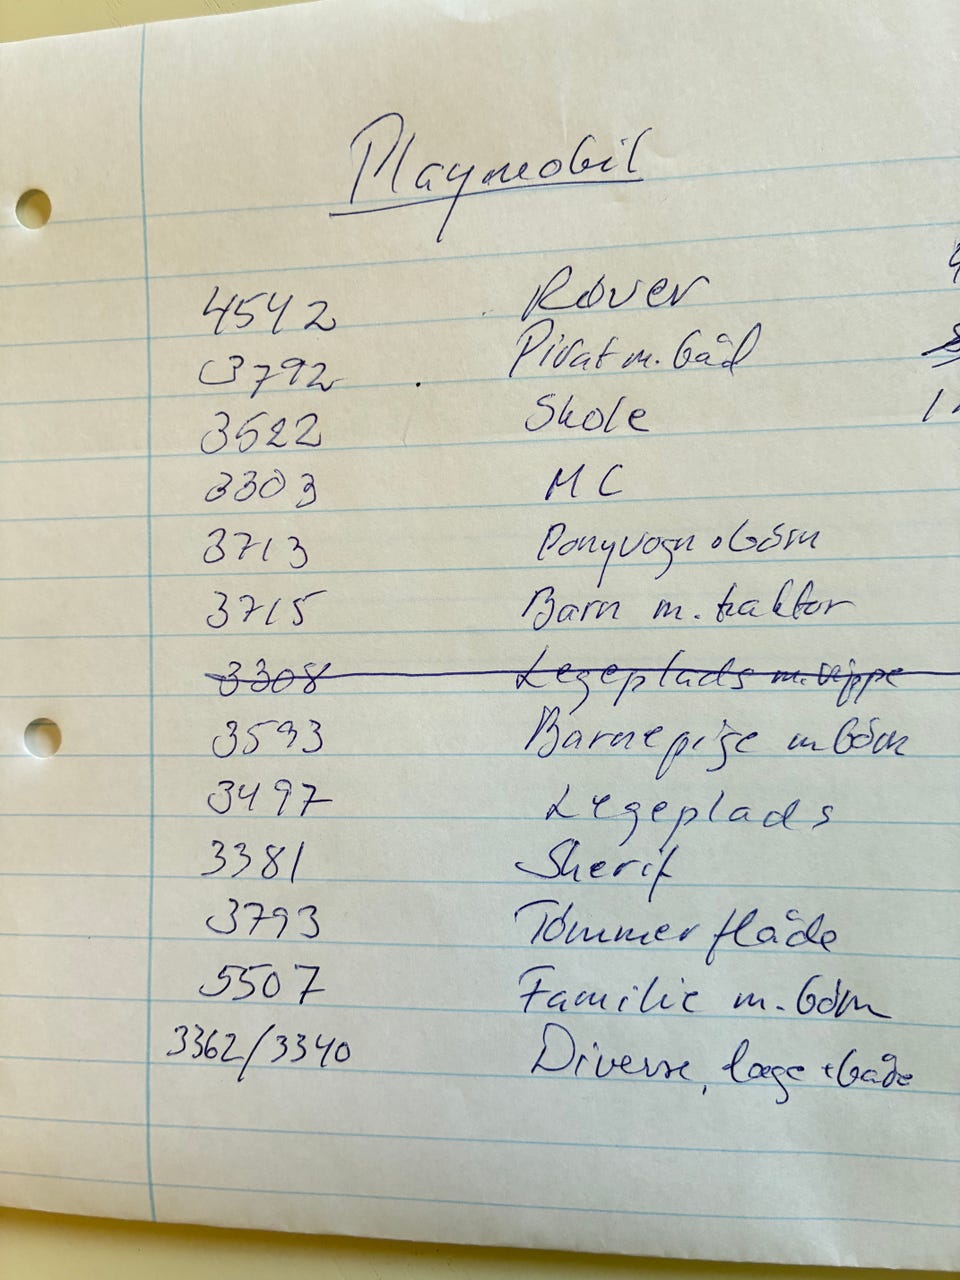 Playmobil
4542 Røver
3792 Pirat m. båd
3522 Skole
3303 MC
3713 Ponyvogn + børn
3715 Barn m. traktor
3308 Legeplads m. vippe
3593 Barnepige m børn
3497 Legeplads
3381 Sherif
3793 Tømmerflåde
5507 Familie m. børn
3362/3340 Diverse, læge + både